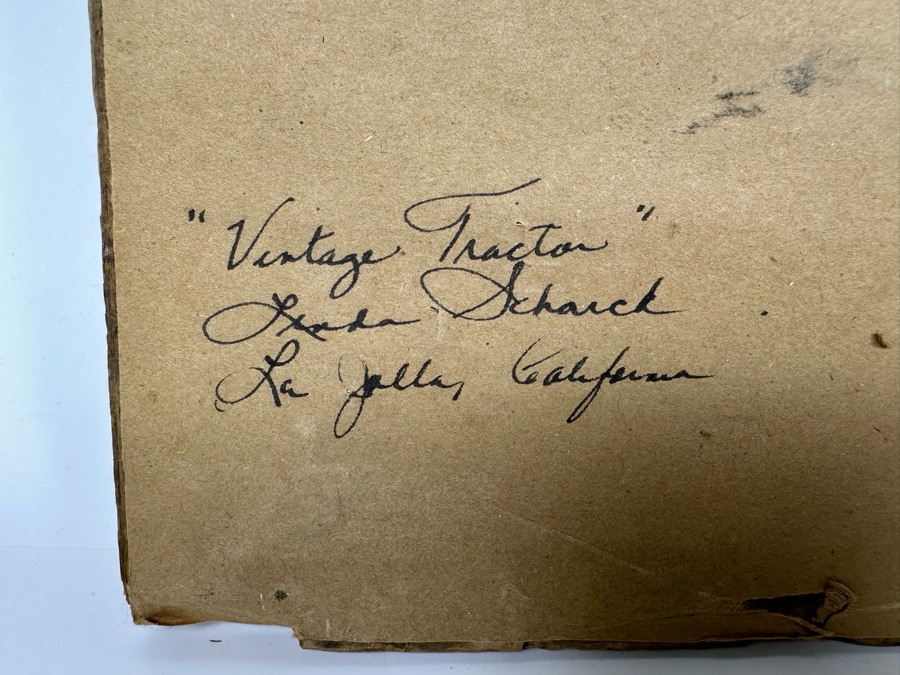 "Vintage Tractor"
Linda Scharck
La Jolla, California